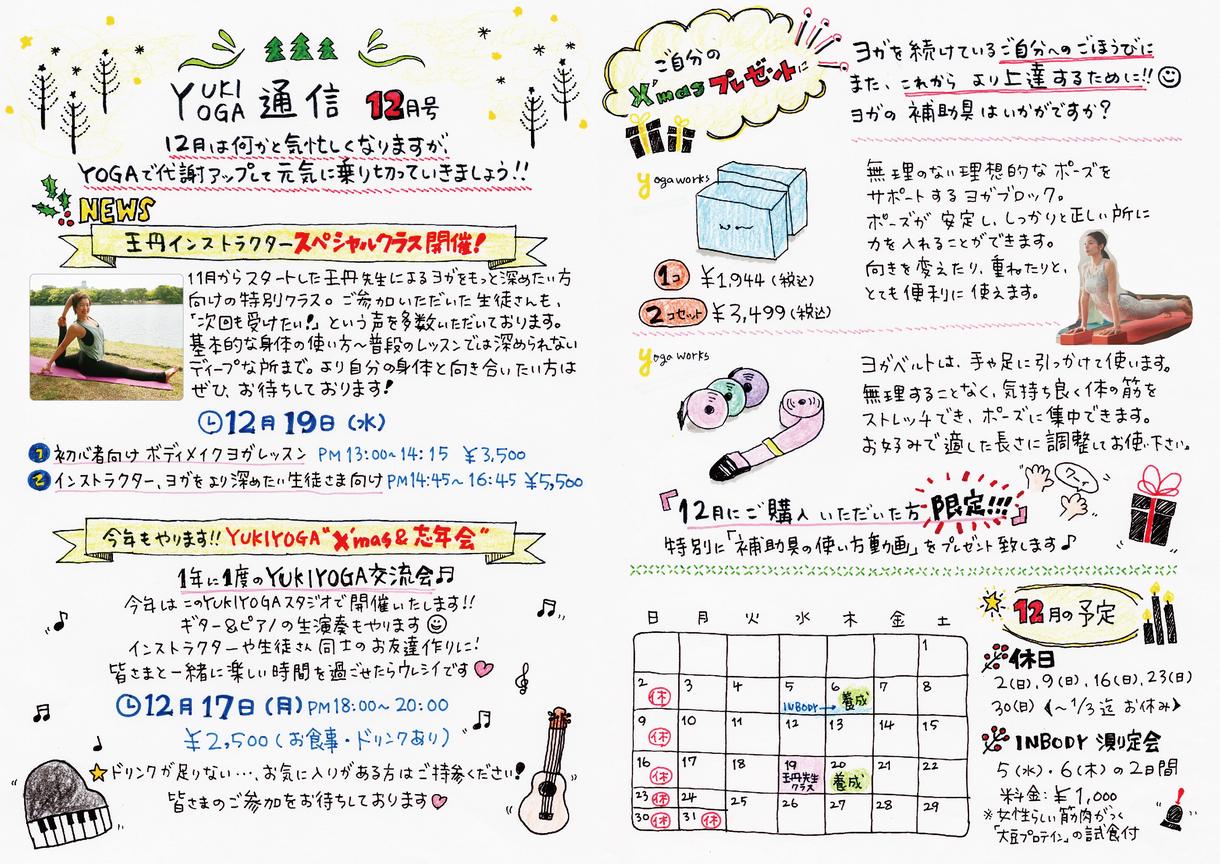 YUKI YOGA 通信 12月号
12月は何かと気忙しくなりますが、
YOGAで代謝アップして元気に乗り切っていきましょう!!
NEWS
王丹インストラクタースペシャルクラス開催!
11月からスタートした王丹先生によるヨガをもっと深めたい方
向けの特別クラス。ご参加いただいた生徒さんも、
「次回も受けたい!」という声を多数いただいております。
基本的な身体の使い方～普段のレッスンでは深められない
ディープな所まで。より自分の身体と向き合いたい方は
ぜひ、お待ちしております!
12月19日(水)
1 初心者向けボディメイクヨガレッスン PM13:00~14:15 ¥3,500
2 インストラクター、ヨガをより深めたい生徒さま向け PM14:45~16:45 ¥5,500
今年もやります!! YUKIYOGA"X'mas&忘年会"
1年に1度のYUKIYOGA交流会♫
今年はこのYUKIYOGAスタジオで開催いたします!!
ギター&ピアノの生演奏もやります
インストラクターや生徒さん同士のお友達作りに!
皆さまと一緒に楽しい時間を過ごせたらウレシイです
12月17日(月) PM18:00~20:00
¥2,500(お食事・ドリンクあり)
★ドリンクが足りない…、お気に入りがある方はご持参ください!
皆さまのご参加をお待ちしております
ご自分の
X'masプレゼントに
ヨガを続けているご自分へのごほうびに
また、これから より上達するために!!
ヨガの補助具はいかがですか?
yogaworks
1コ ¥1,944(税込)
2コセット ¥3,499(税込)
無理のない理想的なポーズを
サポートするヨガブロック。
ポーズが安定し、しっかりと正しい所に
力を入れることができます。
向きを変えたり、重ねたりと、
とても便利に使えます。
yoga works
ヨガベルトは、手や足に引っかけて使います。
無理することなく、気持ち良く体の筋を
ストレッチでき、ポーズに集中できます。
お好みで適した長さに調整してお使い下さい。
『12月にご購入いただいた方限定!!!』
特別に「補助具の使い方動画」をプレゼント致します♪
12月の予定
日 月 火 水 木 金 土
1
2 休 3 4 5 6 養成 7 8
INBODY→
9 休 10 11 12 13 14 15
16 休 17 18 19 王丹先生クラス 20 養成 21 22
23 休 24 25 26 27 28 29
30 休 31 休
休日
2(日),9(日),16(日),23(日)
30(日)(~1/3迄 お休み)
INBODY 測定会
5(水)・6(木)の2日間
料金:¥1,000
※女性らしい筋肉がつく
「大豆プロテイン」の試食付